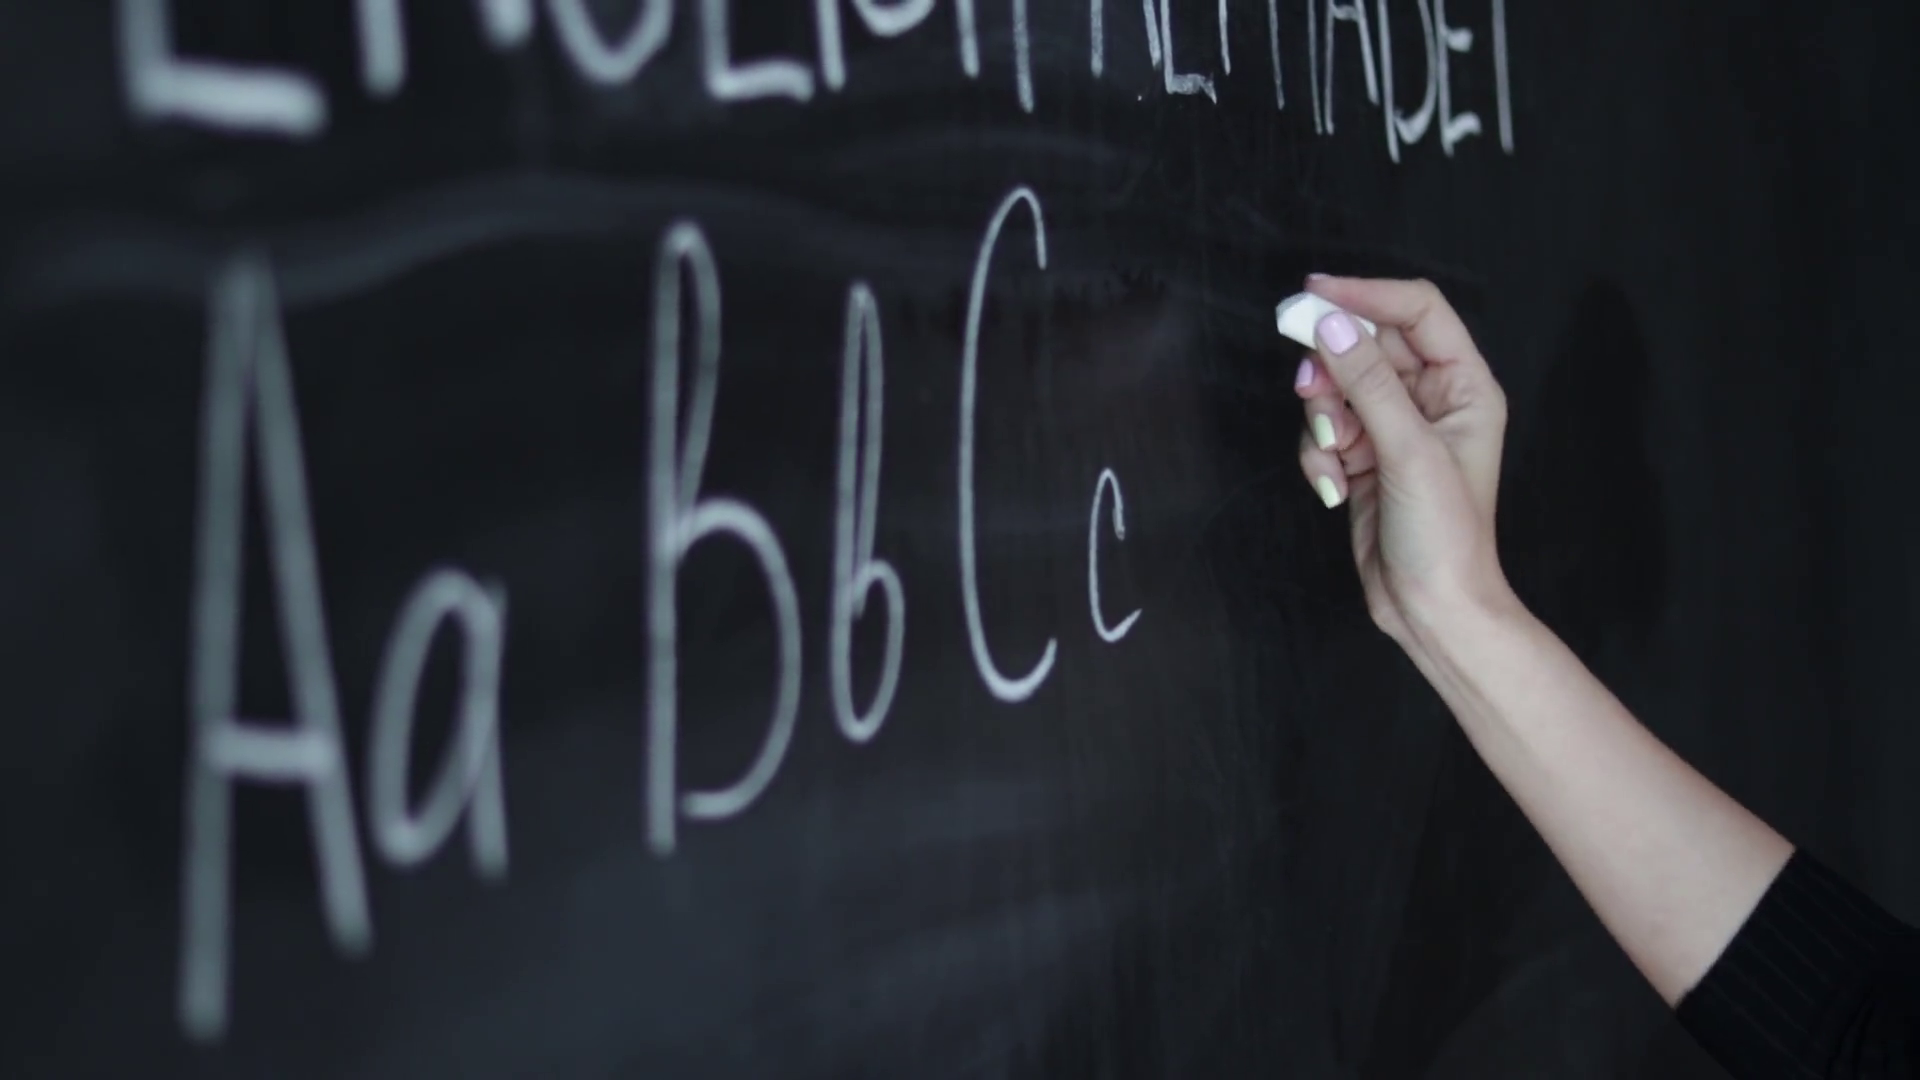 ENGLISH ALPHABET
Aa Bb Cc